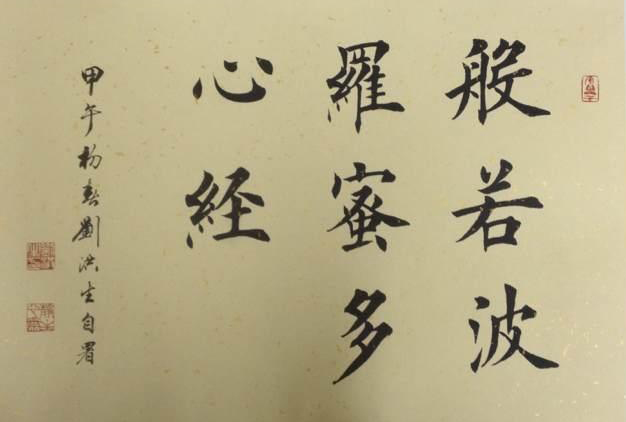 般若波
羅蜜多
心经
甲午初春劉洪生自署